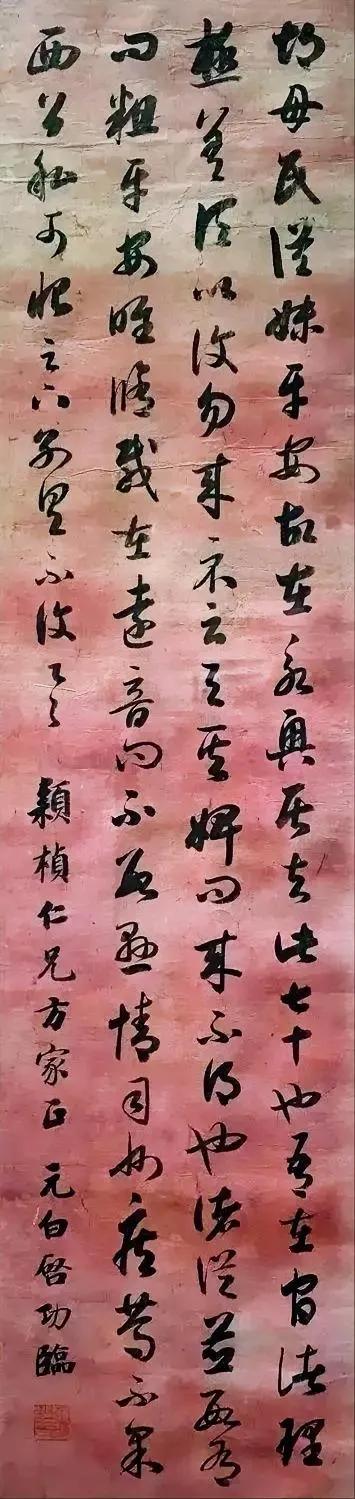 胡母氏從妹平安故在永興居去此七十也吾在官諸理
極差頃比復勿來示云与其婢問来不得也諸從並數有
問粗平安唯脩載在遠音問不數懸情司州疾篤不果
西公私可恨足下別具不復一一 穎楨仁兄方家正 元白啓功臨